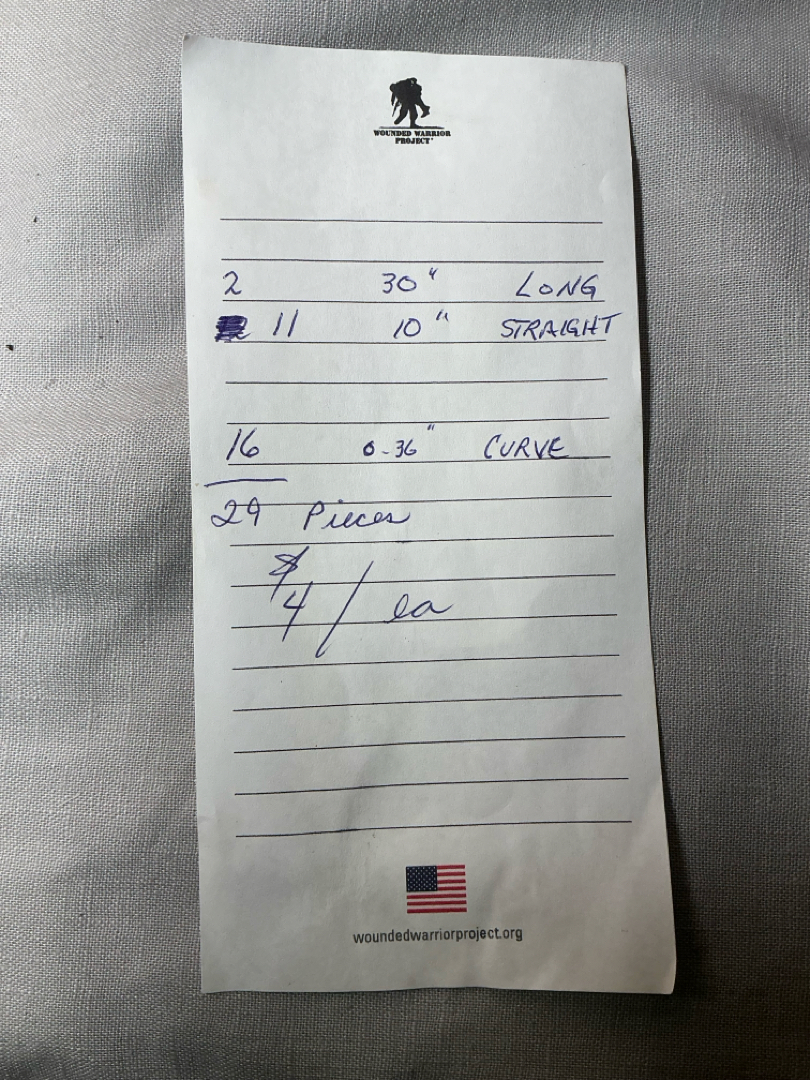 WOUNDED WARRIOR
PROJECT®
2 30" LONG
11 10" STRAIGHT
16 0-36" CURVE
29 Pieces
$4/ea
woundedwarriorproject.org